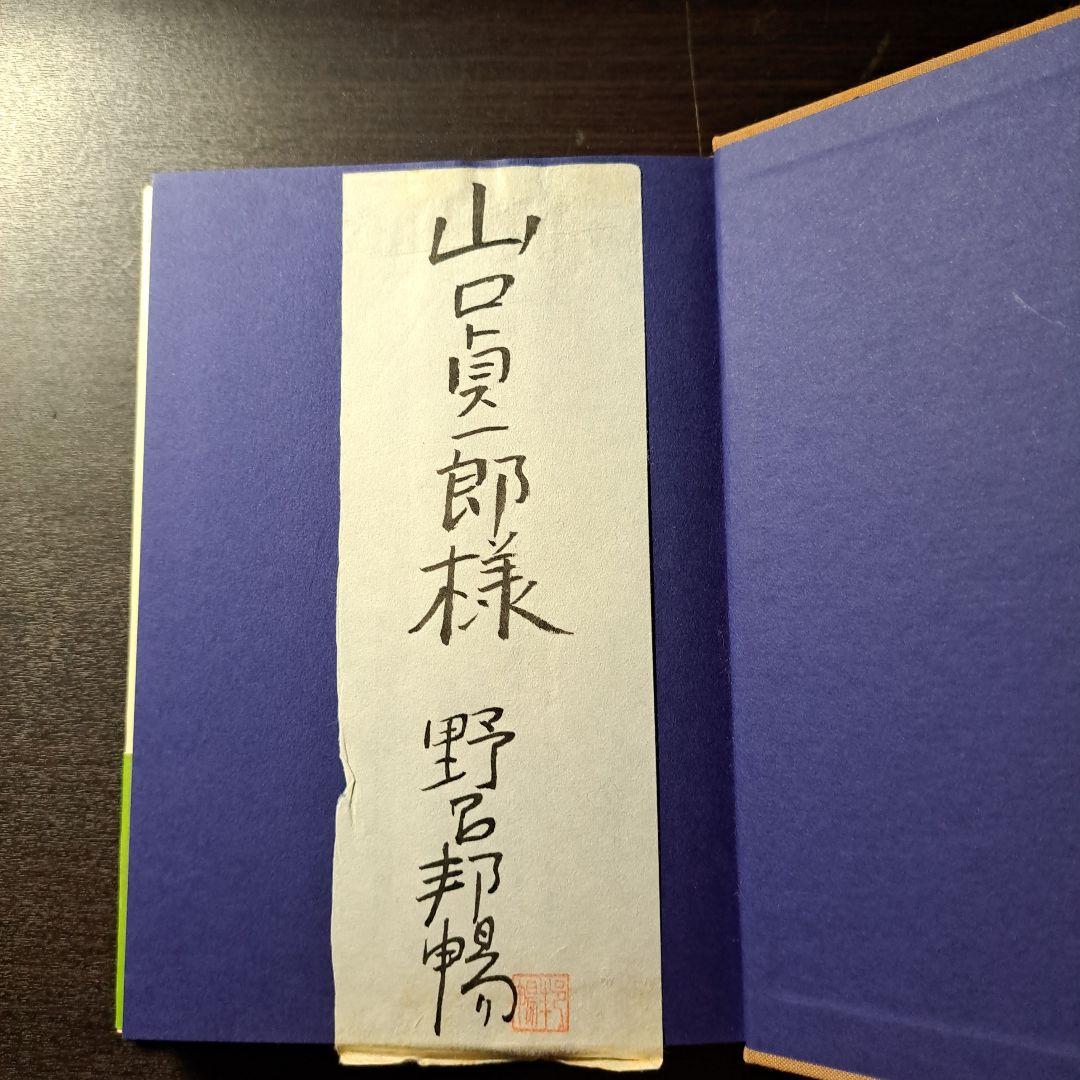 山口貞一郎様
野呂邦暢
邦暢